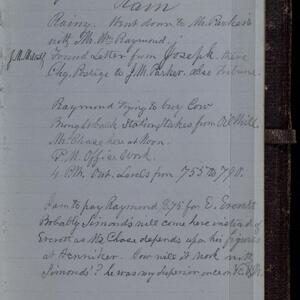 Rain
Rainy. Went down to Mr. Parker's
with Mr. Wm Raymond.
Found Letter from Joseph there
Chg. Postage to J.M. Parker. also Tribune.
Raymond trying to buy Cow
Brought back Station Stakes from Oil Mill
Mr. Chase here at Noon.
P.M. Office Work.
4 P.M. Out. Levels from 755 to 790.
I am to pay Raymond 3.75 for E. Everett
Probably Simonds will come here instead of
Everett as Mr Chase depends upon his figures
at Henniker. How will it work with
Simonds? he was my superior once on